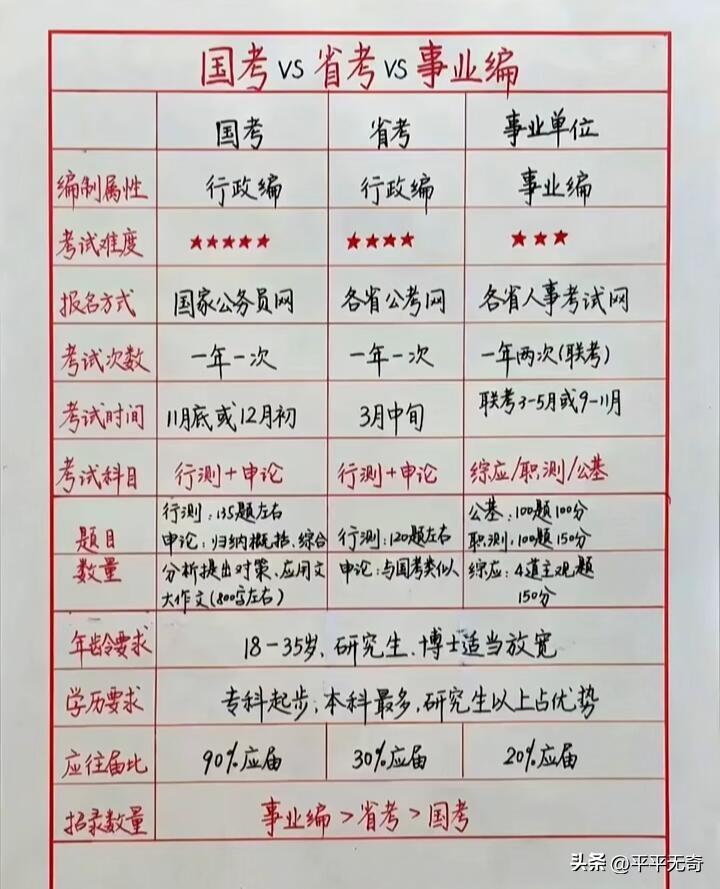 国考vs省考vs事业编
国考 省考 事业单位
编制属性 行政编 行政编 事业编
考试难度 ★★★★★ ★★★★ ★★★
报名方式 国家公务员网 各省公考网 各省人事考试网
考试次数 一年一次 一年一次 一年两次(联考)
考试时间 11月底或12月初 3月中旬 联考3-5月或9-11月
考试科目 行测+申论 行测+申论 综应/职测/公基
行测:135题左右 公基:100题100分
题目 申论:归纳概括、综合 行测:120题左右 职测:100题150分
数量 分析提出对策、应用文 申论:与国考类似 综应:4道主观题
大作文(800字左右) 150分
年龄要求 18-35岁,研究生、博士适当放宽
学历要求 专科起步,本科最多,研究生以上占优势
应往届比 90%应届 30%应届 20%应届
招录数量 事业编>省考>国考
头条 @平平无奇